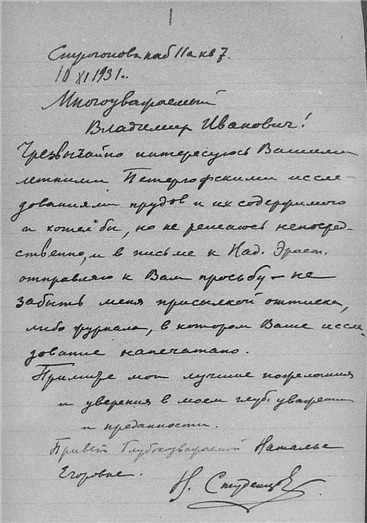 Строгонова наб 11а кв 7.
10 XI 1931.
Многоуважаемый
Владимир Иванович!
Чрезвычайно интересуюсь Вашими
летними Петергофскими иссле-
дованиями прудов и их содержимого
и хотел бы, но не решаюсь непосред-
ственно, и в письме к Над. Эраст.
отправляю к Вам просьбу – не
забыть меня присылкой оттиска,
либо журнала, в котором Ваше иссле
дование напечатано.
Примите мои лучшие пожелания
и уверения в моем глуб. уважении
и преданности.
Привет Глубокоуважаемой Наталье
Егоровне.
Н. Студенцов